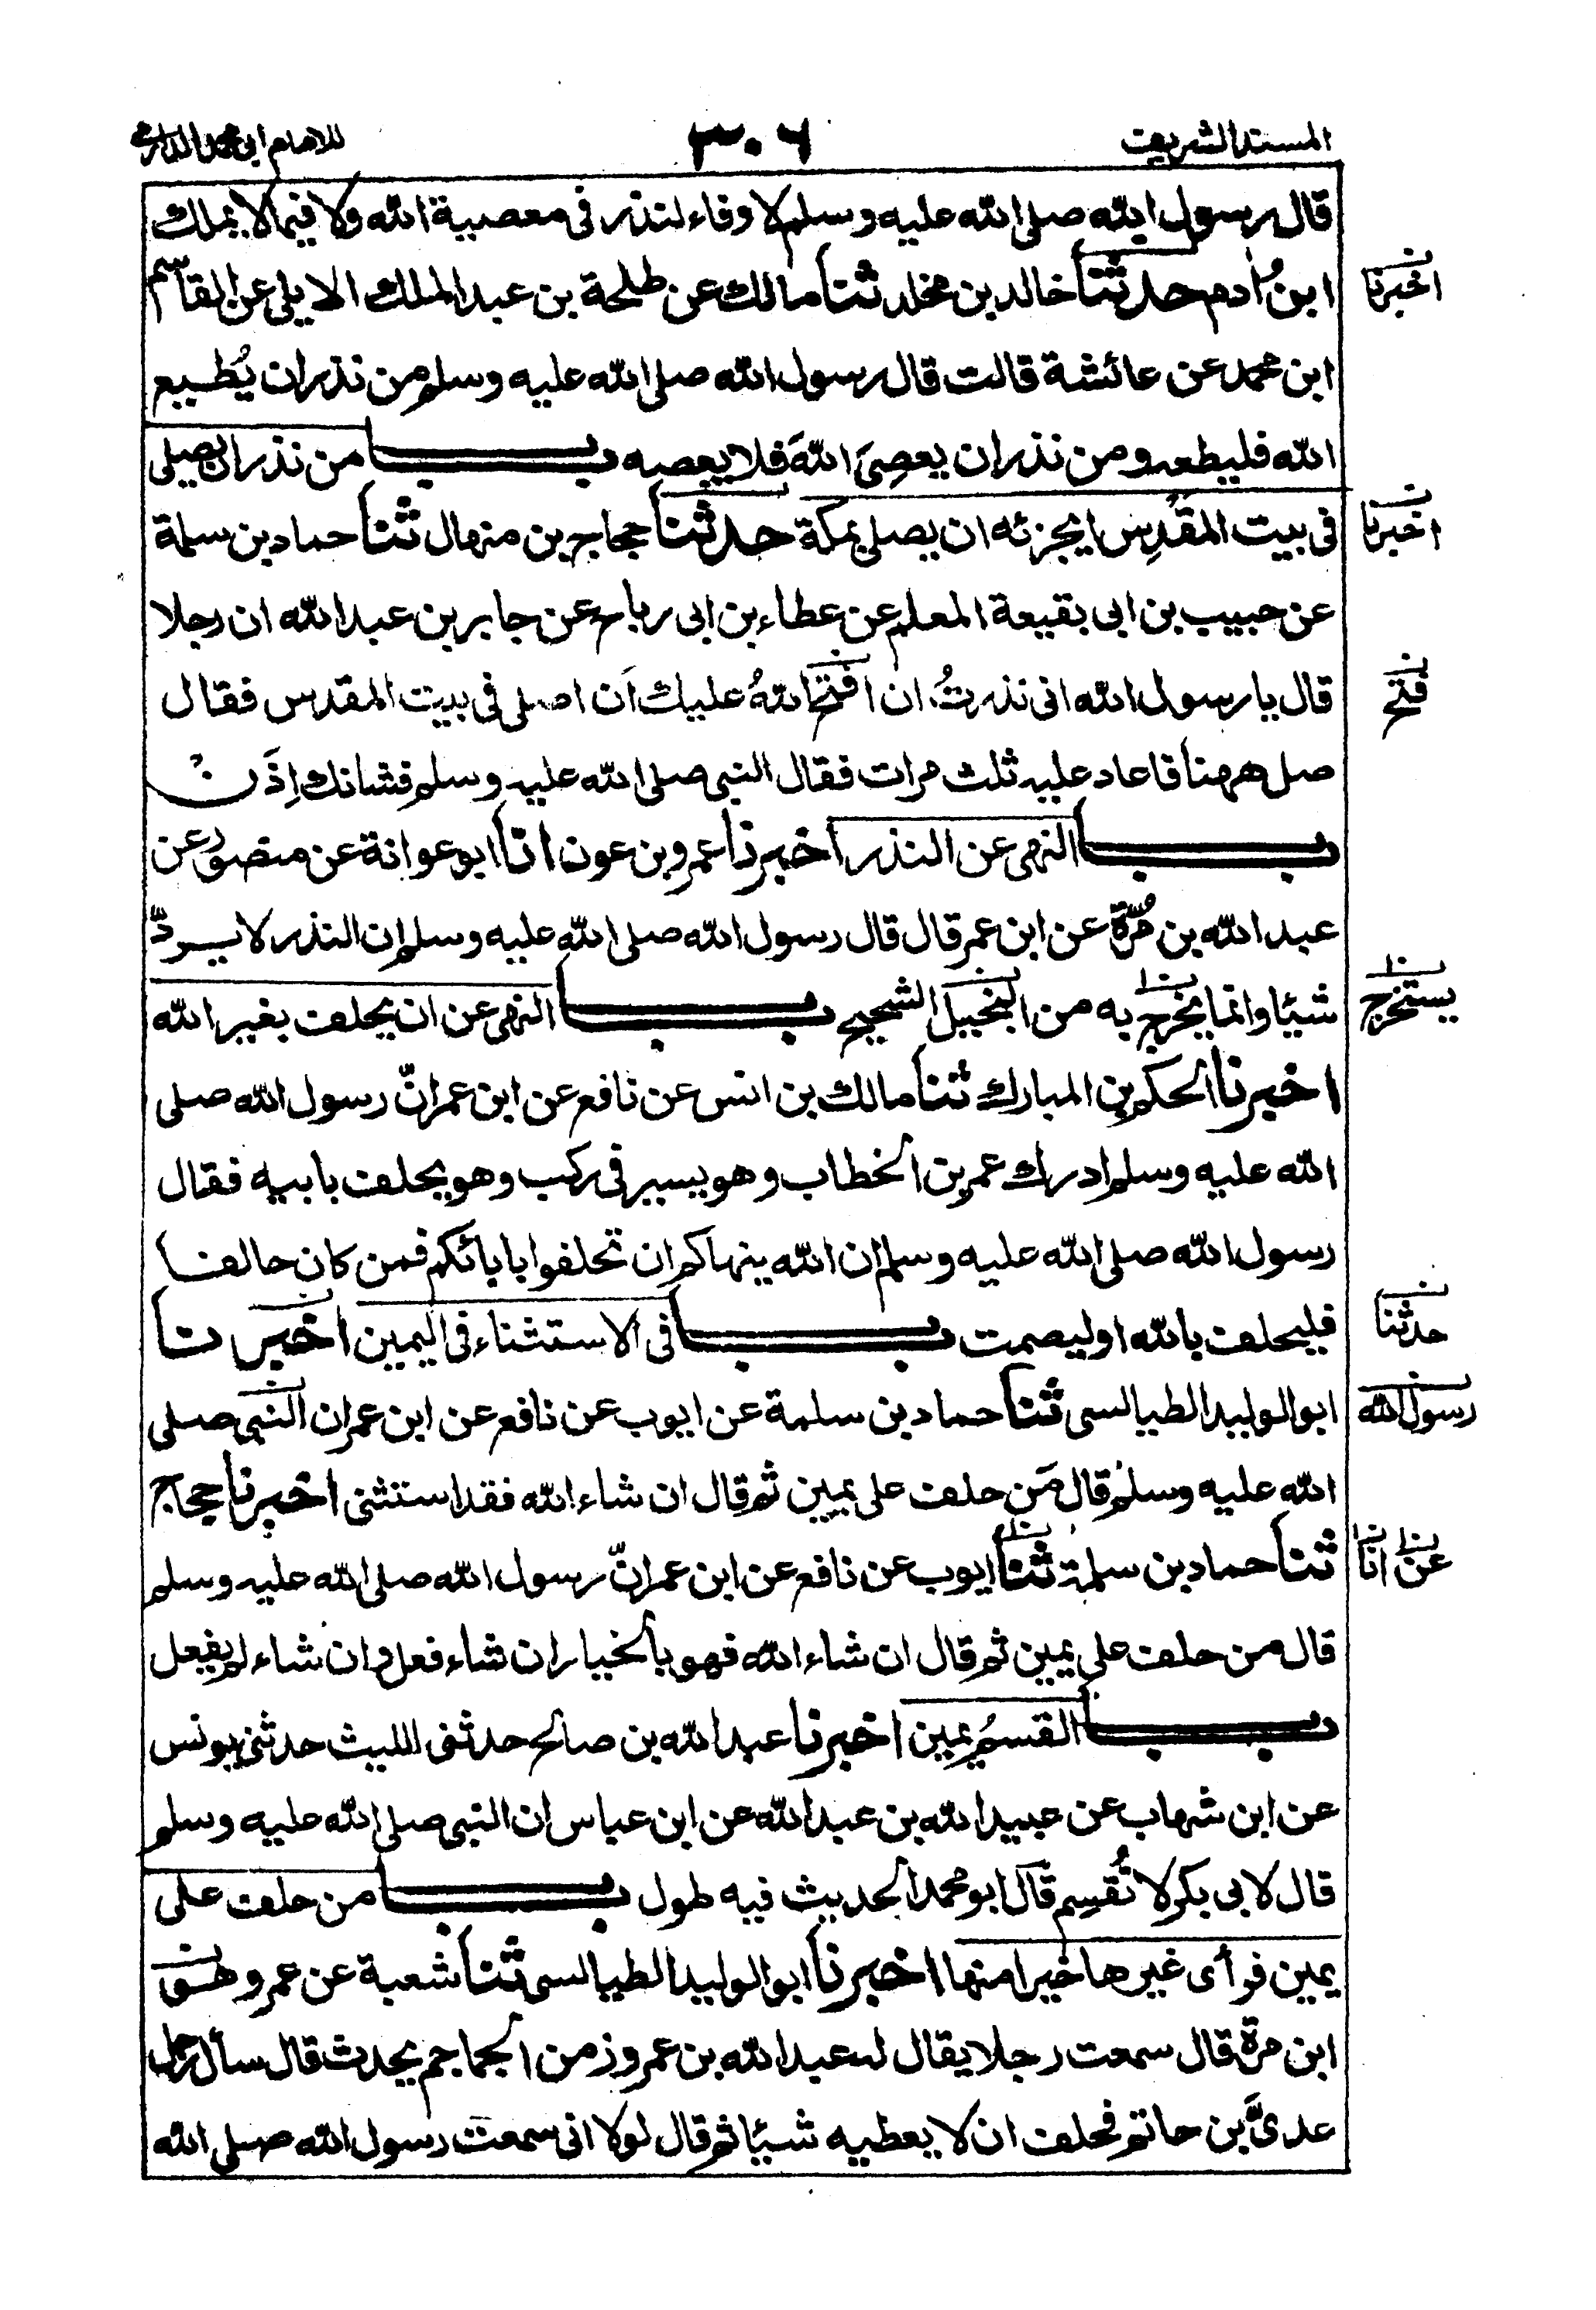 المسند الشريف
٣٠٦
للامام ابى محمد الدارمى
قال رسول الله صلى الله عليه وسلم لا وفاء لنذر فى معصية الله ولا فيما لا يملك
ابن اٰدم حدثنا خالد بن مخلد ثنا مالك عن طلحة بن عبد الملك الايلى عن القاسم
اخبرنا
ابن محمد عن عائشة قالت قال رسول الله صلى الله عليه وسلم من نذر ان يُطيع
الله فليطعه ومن نذر ان يعصِىَ اللهَ فلا يعصه باب من نذر ان يصلى
فى بيت المقدِس ايجزئه ان يصلى بمكة حدثنا حجاج بن منهال ثنا حماد بن سلمة
اخبرنا
عن حبيب بن ابى بقيعة المعلم عن عطاء بن ابى رباح عن جابر بن عبد الله ان رجلا
قال يا رسول الله انى نذرتُ ان افتح اللهُ عليك اَن اصلى فى بيت المقدس فقال
فتح
صل ههنا فاعاد عليه ثلث مرات فقال النبى صلى الله عليه وسلم فشانك اِذَن
باب النهى عن النذر اخبرنا عمرو بن عون انا ابو عوانة عن منصور عن
عبد الله بن مُرّة عن ابن عمر قال قال رسول الله صلى الله عليه وسلم ان النذر لا يردّ
شيئا وانما يخرج به من البخيل الشحيح باب النهى عن ان يحلف بغير الله
يستخرج
اخبرنا الحكم بن المبارك ثنا مالك بن انس عن نافع عن ابن عمر انّ رسول الله صلى
الله عليه وسلم ادرك عمر بن الخطاب وهو يسير فى ركب وهو يحلف بابيه فقال
رسول الله صلى الله عليه وسلم ان الله ينهاكم ان تحلفوا بابائكم فمن كان حالفا
فليحلف بالله او ليصمت باب فى الاستثناء فى اليمين اخبرنا
حدثنا
ابو الوليد الطيالسى ثنا حماد بن سلمة عن ايوب عن نافع عن ابن عمر ان النبى صلى
رسول الله
الله عليه وسلم قال مَن حلف على يمين ثم قال ان شاء الله فقد استثنى اخبرنا حجاج
ثنا حماد بن سلمة ثنا ايوب عن نافع عن ابن عمر انّ رسول الله صلى الله عليه وسلم
عن انا
قال من حلف على يمين ثم قال ان شاء الله فهو بالخيار ان شاء فعل وان شاء لم يفعل
باب القسمُ يمين اخبرنا عبد الله بن صالح حدثنى الليث حدثنى يونس
عن ابن شهاب عن عبيد الله بن عبد الله عن ابن عباس ان النبى صلى الله عليه وسلم
قال لابى بكر لا تُقسِم قال ابو محمد الحديث فيه طول باب من حلف على
يمين فرأى غيرها خيرا منها اخبرنا ابو الوليد الطيالسى ثنا شعبة عن عمرو هو
ابن مرة قال سمعت رجلا يقال له عبد الله بن عمرو زمن الجماجم يحدث قال سأل رجل
عدىَّ بن حاتم فحلف ان لا يعطيه شيئا ثم قال لولا انى سمعت رسول الله صلى الله